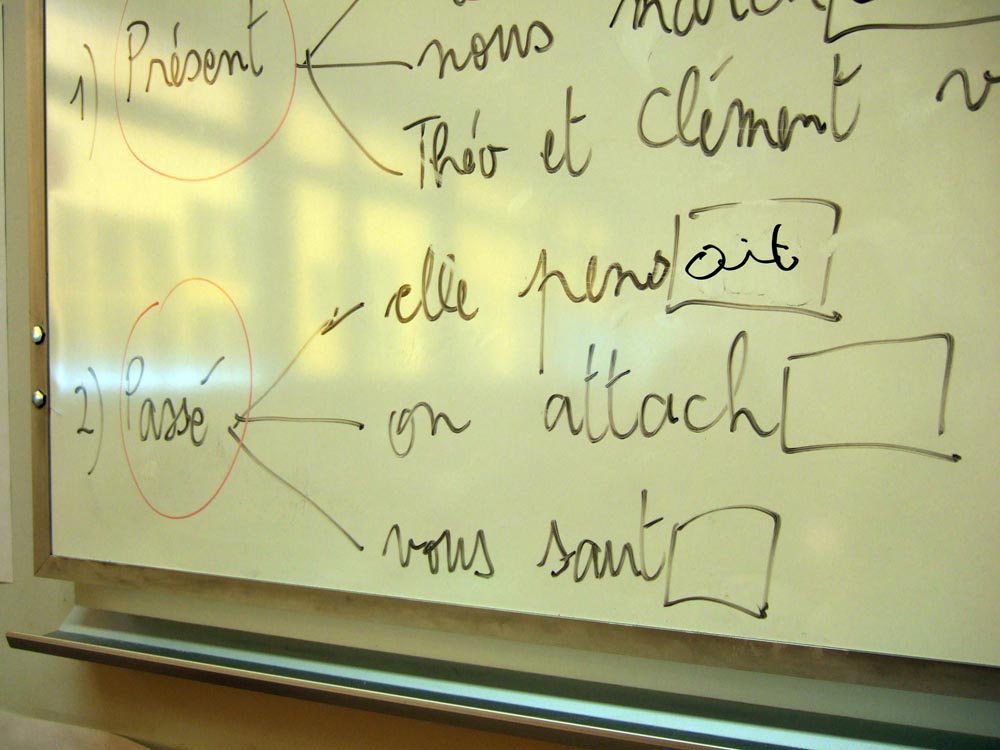 1) Présent
nous march
Théo et Clément v
2) Passé
elle pensait
on attach
vous saut